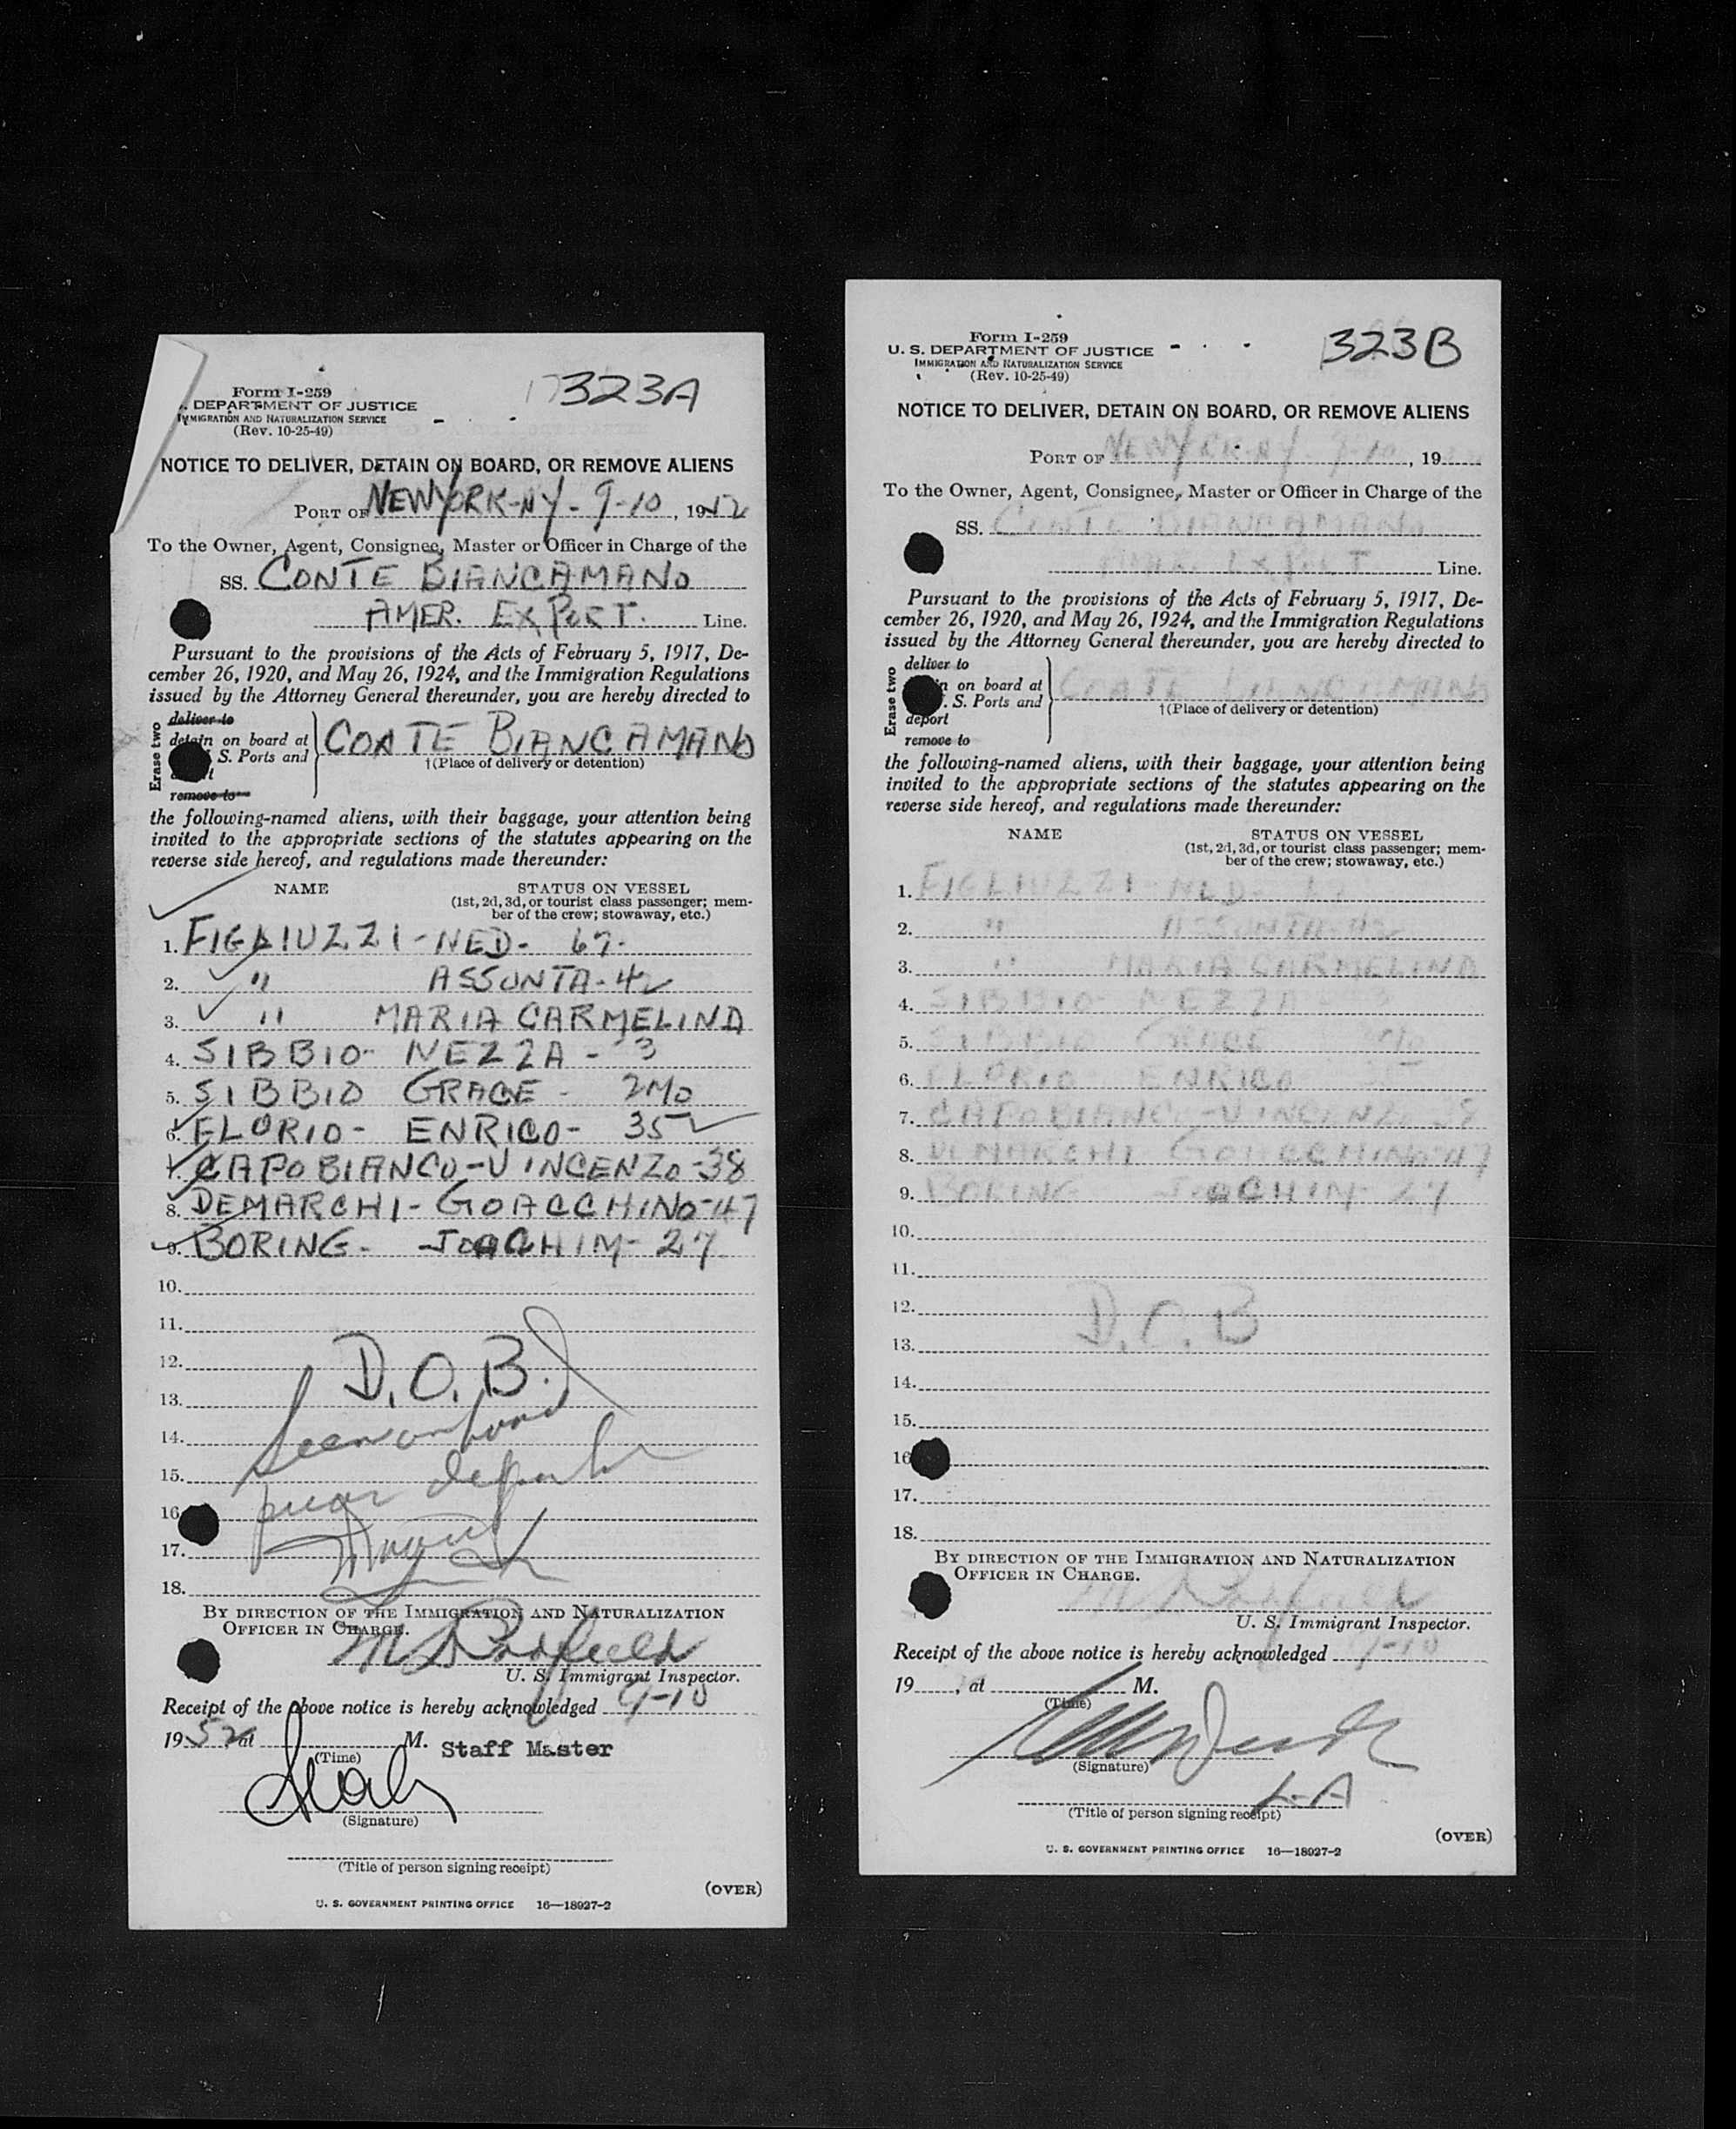 323A
Form I-259
. DEPARTMENT OF JUSTICE
IMMIGRATION AND NATURALIZATION SERVICE
(Rev. 10-25-49)
NOTICE TO DELIVER, DETAIN ON BOARD, OR REMOVE ALIENS
PORT OF NEW YORK-NY - 9-10, 1952
To the Owner, Agent, Consignee, Master or Officer in Charge of the
SS. CONTE BIANCAMANO
AMER. EXPORT. Line.
Pursuant to the provisions of the Acts of February 5, 1917, De-
cember 26, 1920, and May 26, 1924, and the Immigration Regulations
issued by the Attorney General thereunder, you are hereby directed to
Erase two
deliver to
detain on board at
S. Ports and
remove to
CONTE BIANCAMANO
†(Place of delivery or detention)
the following-named aliens, with their baggage, your attention being
invited to the appropriate sections of the statutes appearing on the
reverse side hereof, and regulations made thereunder:
NAME STATUS ON VESSEL
(1st, 2d, 3d, or tourist class passenger; mem-
ber of the crew; stowaway, etc.)
1. FIGLIUZZI - NED - 67-
2. " ASSUNTA - 42
3. " MARIA CARMELINA
4. SIBBIO - NEZZA - 3
5. SIBBIO GRACE - 2MO
6. FLORIO - ENRICO - 35
7. CAPOBIANCO - VINCENZO - 38
8. DEMARCHI - GOACCHINO - 47
9. BORING - JOACHIM - 27
10.
11.
12. D.O.B.
13.
14. Seen on board
15. prior depart
16
17.
18.
BY DIRECTION OF THE IMMIGRATION AND NATURALIZATION
OFFICER IN CHARGE.
U. S. Immigrant Inspector.
Receipt of the above notice is hereby acknowledged 9-10
1952 at M. Staff Master
(Time)
(Signature)
(Title of person signing receipt)
(OVER)
U. S. GOVERNMENT PRINTING OFFICE 16—18927-2
323B
Form I-259
U. S. DEPARTMENT OF JUSTICE
IMMIGRATION AND NATURALIZATION SERVICE
(Rev. 10-25-49)
NOTICE TO DELIVER, DETAIN ON BOARD, OR REMOVE ALIENS
PORT OF NEW YORK-NY - 9-10, 19
To the Owner, Agent, Consignee, Master or Officer in Charge of the
SS. CONTE BIANCAMANO
AMER. EXPORT Line.
Pursuant to the provisions of the Acts of February 5, 1917, De-
cember 26, 1920, and May 26, 1924, and the Immigration Regulations
issued by the Attorney General thereunder, you are hereby directed to
Erase two
deliver to
on board at
. S. Ports and
deport
remove to
CONTE BIANCAMANO
†(Place of delivery or detention)
the following-named aliens, with their baggage, your attention being
invited to the appropriate sections of the statutes appearing on the
reverse side hereof, and regulations made thereunder:
NAME STATUS ON VESSEL
(1st, 2d, 3d, or tourist class passenger; mem-
ber of the crew; stowaway, etc.)
1. FIGLIUZZI - NED - 67
2. " ASSUNTA - 42
3. " MARIA CARMELINA
4. SIBBIO - NEZZA - 3
5. SIBBIO GRACE 2MO
6. FLORIO - ENRICO 35
7. CAPOBIANCO - VINCENZO 38
8. DEMARCHI - GOACCHINO - 47
9. BORING - JOACHIM - 27
10.
11.
12. D.O.B
13.
14.
15.
16
17.
18.
BY DIRECTION OF THE IMMIGRATION AND NATURALIZATION
OFFICER IN CHARGE.
U. S. Immigrant Inspector.
Receipt of the above notice is hereby acknowledged 9-10
19, at M.
(Time)
(Signature)
(Title of person signing receipt)
(OVER)
U. S. GOVERNMENT PRINTING OFFICE 16—18927-2